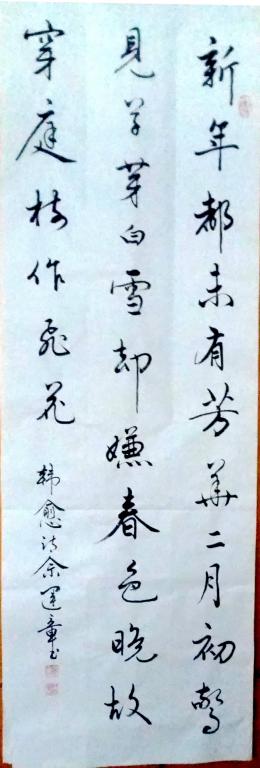 新年都未有芳華二月初驚
見草芽白雪却嫌春色晚故
穿庭樹作飛花
韩愈诗余運章书